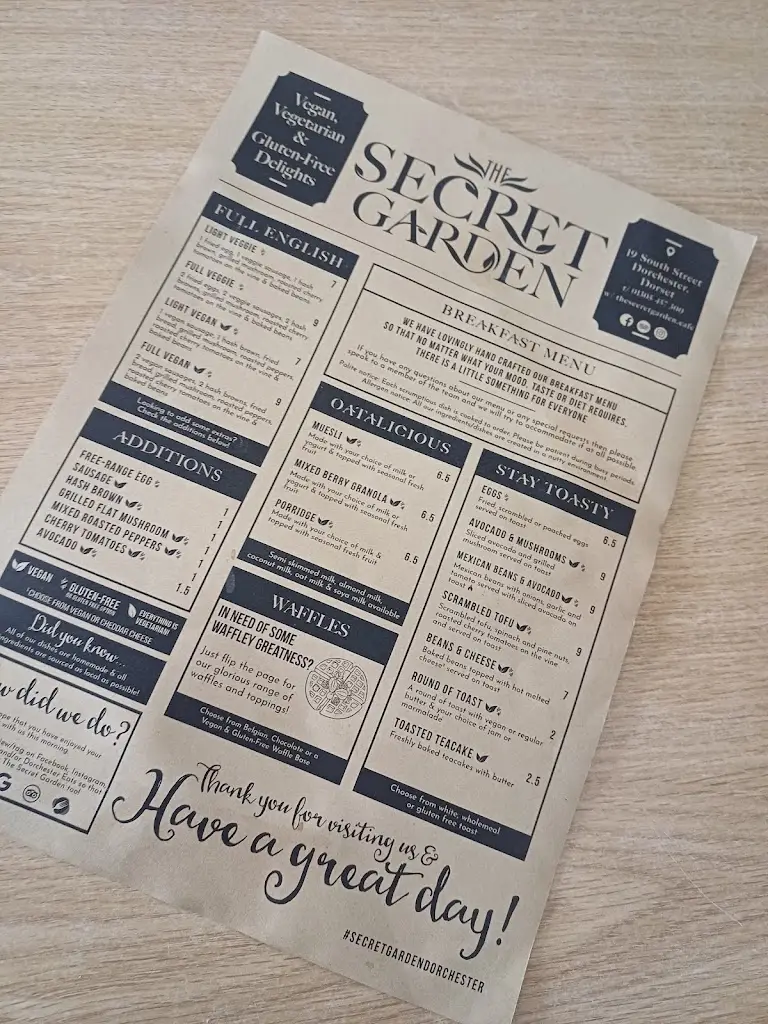 Vegan,
Vegetarian
&
Gluten-Free
Delights
THE
SECRET
GARDEN
19 South Street
Dorchester,
Dorset
t/ 01305 457 300
w/ thesecretgarden.cafe
FULL ENGLISH
LIGHT VEGGIE
1 fried egg, 1 veggie sausage, 1 hash
brown, grilled mushroom, roasted cherry
tomatoes on the vine & baked beans
7
FULL VEGGIE
2 fried eggs, 2 veggie sausages, 2 hash
browns, grilled mushroom, roasted cherry
tomatoes on the vine & baked beans
9
LIGHT VEGAN
1 vegan sausage, 1 hash brown, fried
bread, grilled mushroom, roasted peppers,
roasted cherry tomatoes on the vine &
baked beans
7
FULL VEGAN
2 vegan sausages, 2 hash browns, fried
bread, grilled mushroom, roasted peppers,
roasted cherry tomatoes on the vine &
baked beans
9
Looking to add some extras?
Check the additions below!
ADDITIONS
FREE-RANGE EGG 1
SAUSAGE 1
HASH BROWN 1
GRILLED FLAT MUSHROOM 1
MIXED ROASTED PEPPERS 1
CHERRY TOMATOES 1
AVOCADO 1.5
VEGAN
GLUTEN-FREE
OR GLUTEN FREE OPTION
EVERYTHING IS
VEGETARIAN!
*CHOOSE FROM VEGAN OR CHEDDAR CHEESE
Did you know...
All of our dishes are homemade & all
ingredients are sourced as local as possible!
w did we do?
ope that you have enjoyed your
with us this morning.
view/tag on Facebook, Instagram,
and/or Dorchester Eats so that
The Secret Garden too!
BREAKFAST MENU
WE HAVE LOVINGLY HAND CRAFTED OUR BREAKFAST MENU
SO THAT NO MATTER WHAT YOUR MOOD, TASTE OR DIET REQUIRES,
THERE IS A LITTLE SOMETHING FOR EVERYONE
If you have any questions about our menu or any special requests then please
speak to a member of the team and we will try to accommodate if at all possible.
Polite notice: Each scrumptious dish is cooked to order. Please be patient during busy periods.
Allergen notice: All our ingredients/dishes are created in a nutty environment
OATALICIOUS
MUESLI
Made with your choice of milk or
yogurt & topped with seasonal fresh
fruit
6.5
MIXED BERRY GRANOLA
Made with your choice of milk or
yogurt & topped with seasonal fresh
fruit
6.5
PORRIDGE
Made with your choice of milk &
topped with seasonal fresh fruit
6.5
Semi skimmed milk, almond milk,
coconut milk, oat milk & soya milk available
WAFFLES
IN NEED OF SOME
WAFFLEY GREATNESS?
Just flip the page for
our glorious range of
waffles and toppings!
Choose from Belgian, Chocolate or a
Vegan & Gluten-Free Waffle Base
STAY TOASTY
EGGS
Fried, scrambled or poached eggs
served on toast
6.5
AVOCADO & MUSHROOMS
Sliced avocado and grilled
mushroom served on toast
9
MEXICAN BEANS & AVOCADO
Mexican beans with onions, garlic and
tomato served with sliced avocado on
toast
9
SCRAMBLED TOFU
Scrambled tofu, spinach and pine nuts,
roasted cherry tomatoes on the vine
and served on toast
9
BEANS & CHEESE
Baked beans topped with hot melted
cheese* served on toast
7
ROUND OF TOAST
A round of toast with vegan or regular
butter & your choice of jam or
marmalade
2
TOASTED TEACAKE
Freshly baked teacakes with butter
2.5
Choose from white, wholemeal
or gluten free toast
Thank you for visiting us &
Have a great day!
#SECRETGARDENDORCHESTER